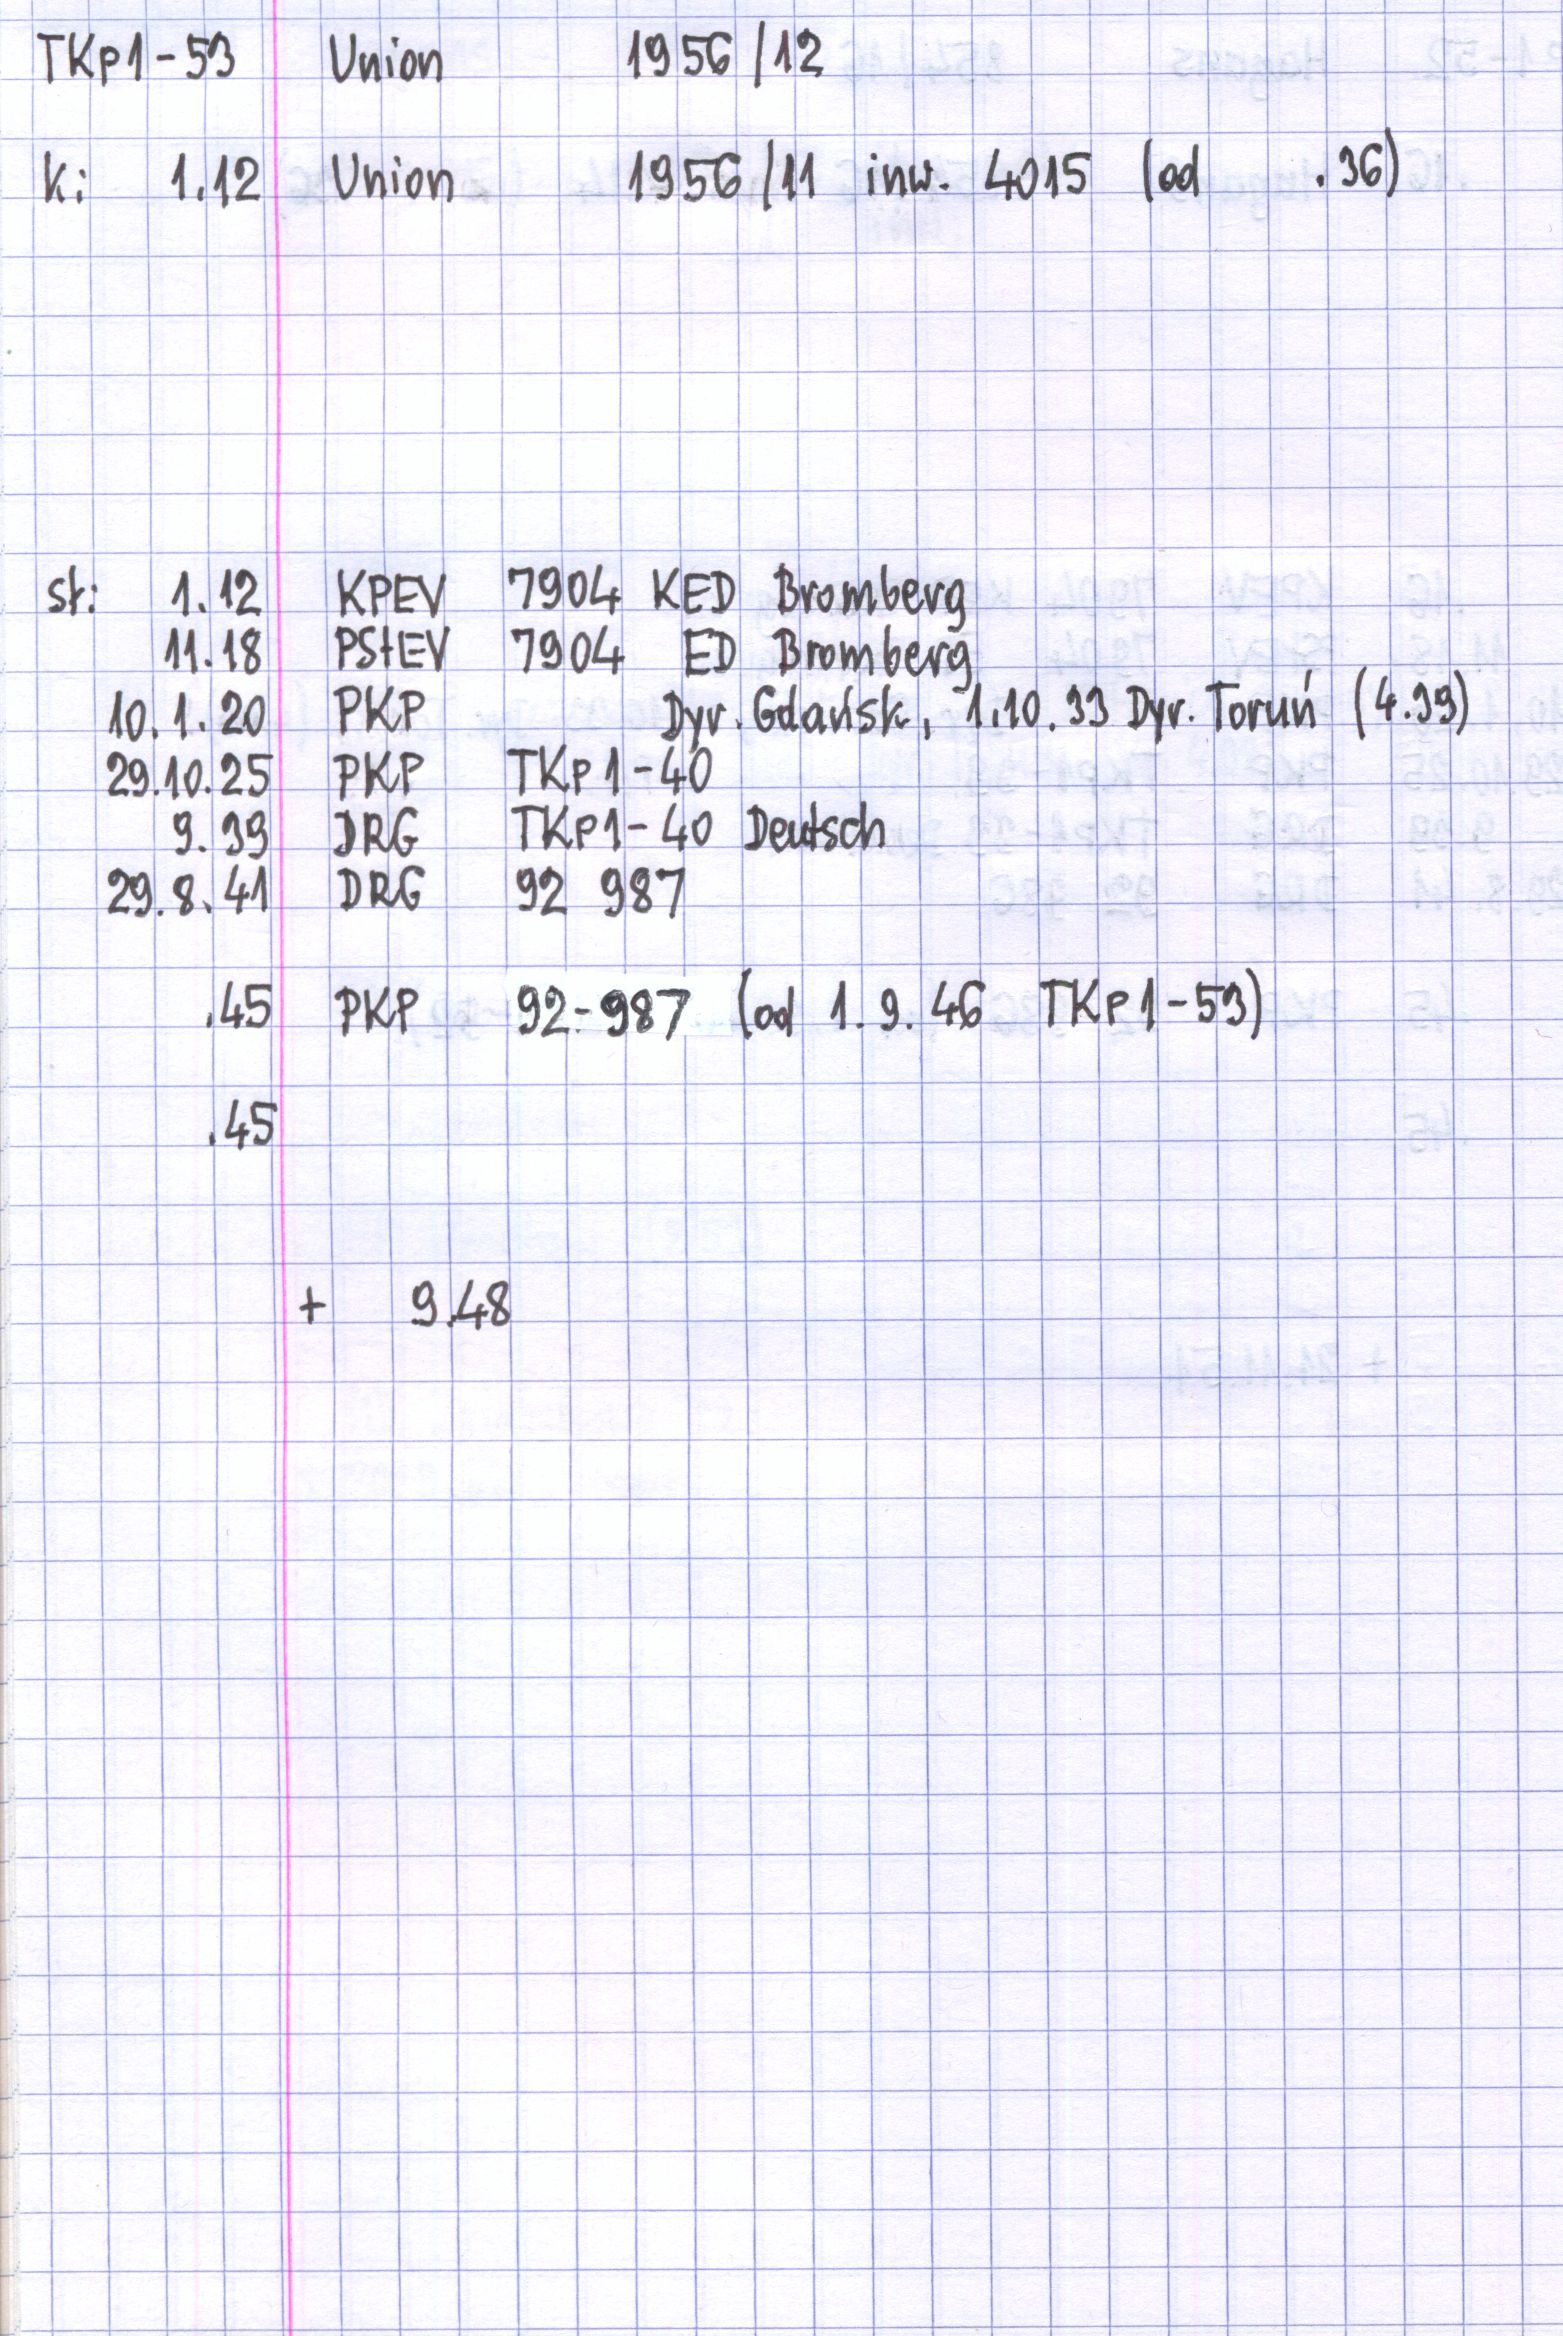 TKp1-53 Union 1956/12
k: 1.12 Union 1956/11 inw. 4015 (od .36)
st: 1.12 KPEV 7904 KED Bromberg
11.18 PStEV 7904 ED Bromberg
10.1.20 PKP Dyr. Gdańsk, 1.10.33 Dyr. Toruń (4.39)
29.10.25 PKP TKp1-40
9.39 DRG TKp1-40 Deutsch
29.8.41 DRG 92 987
.45 PKP 92-987 (od 1.9.46 TKp1-53)
.45
+ 9.48